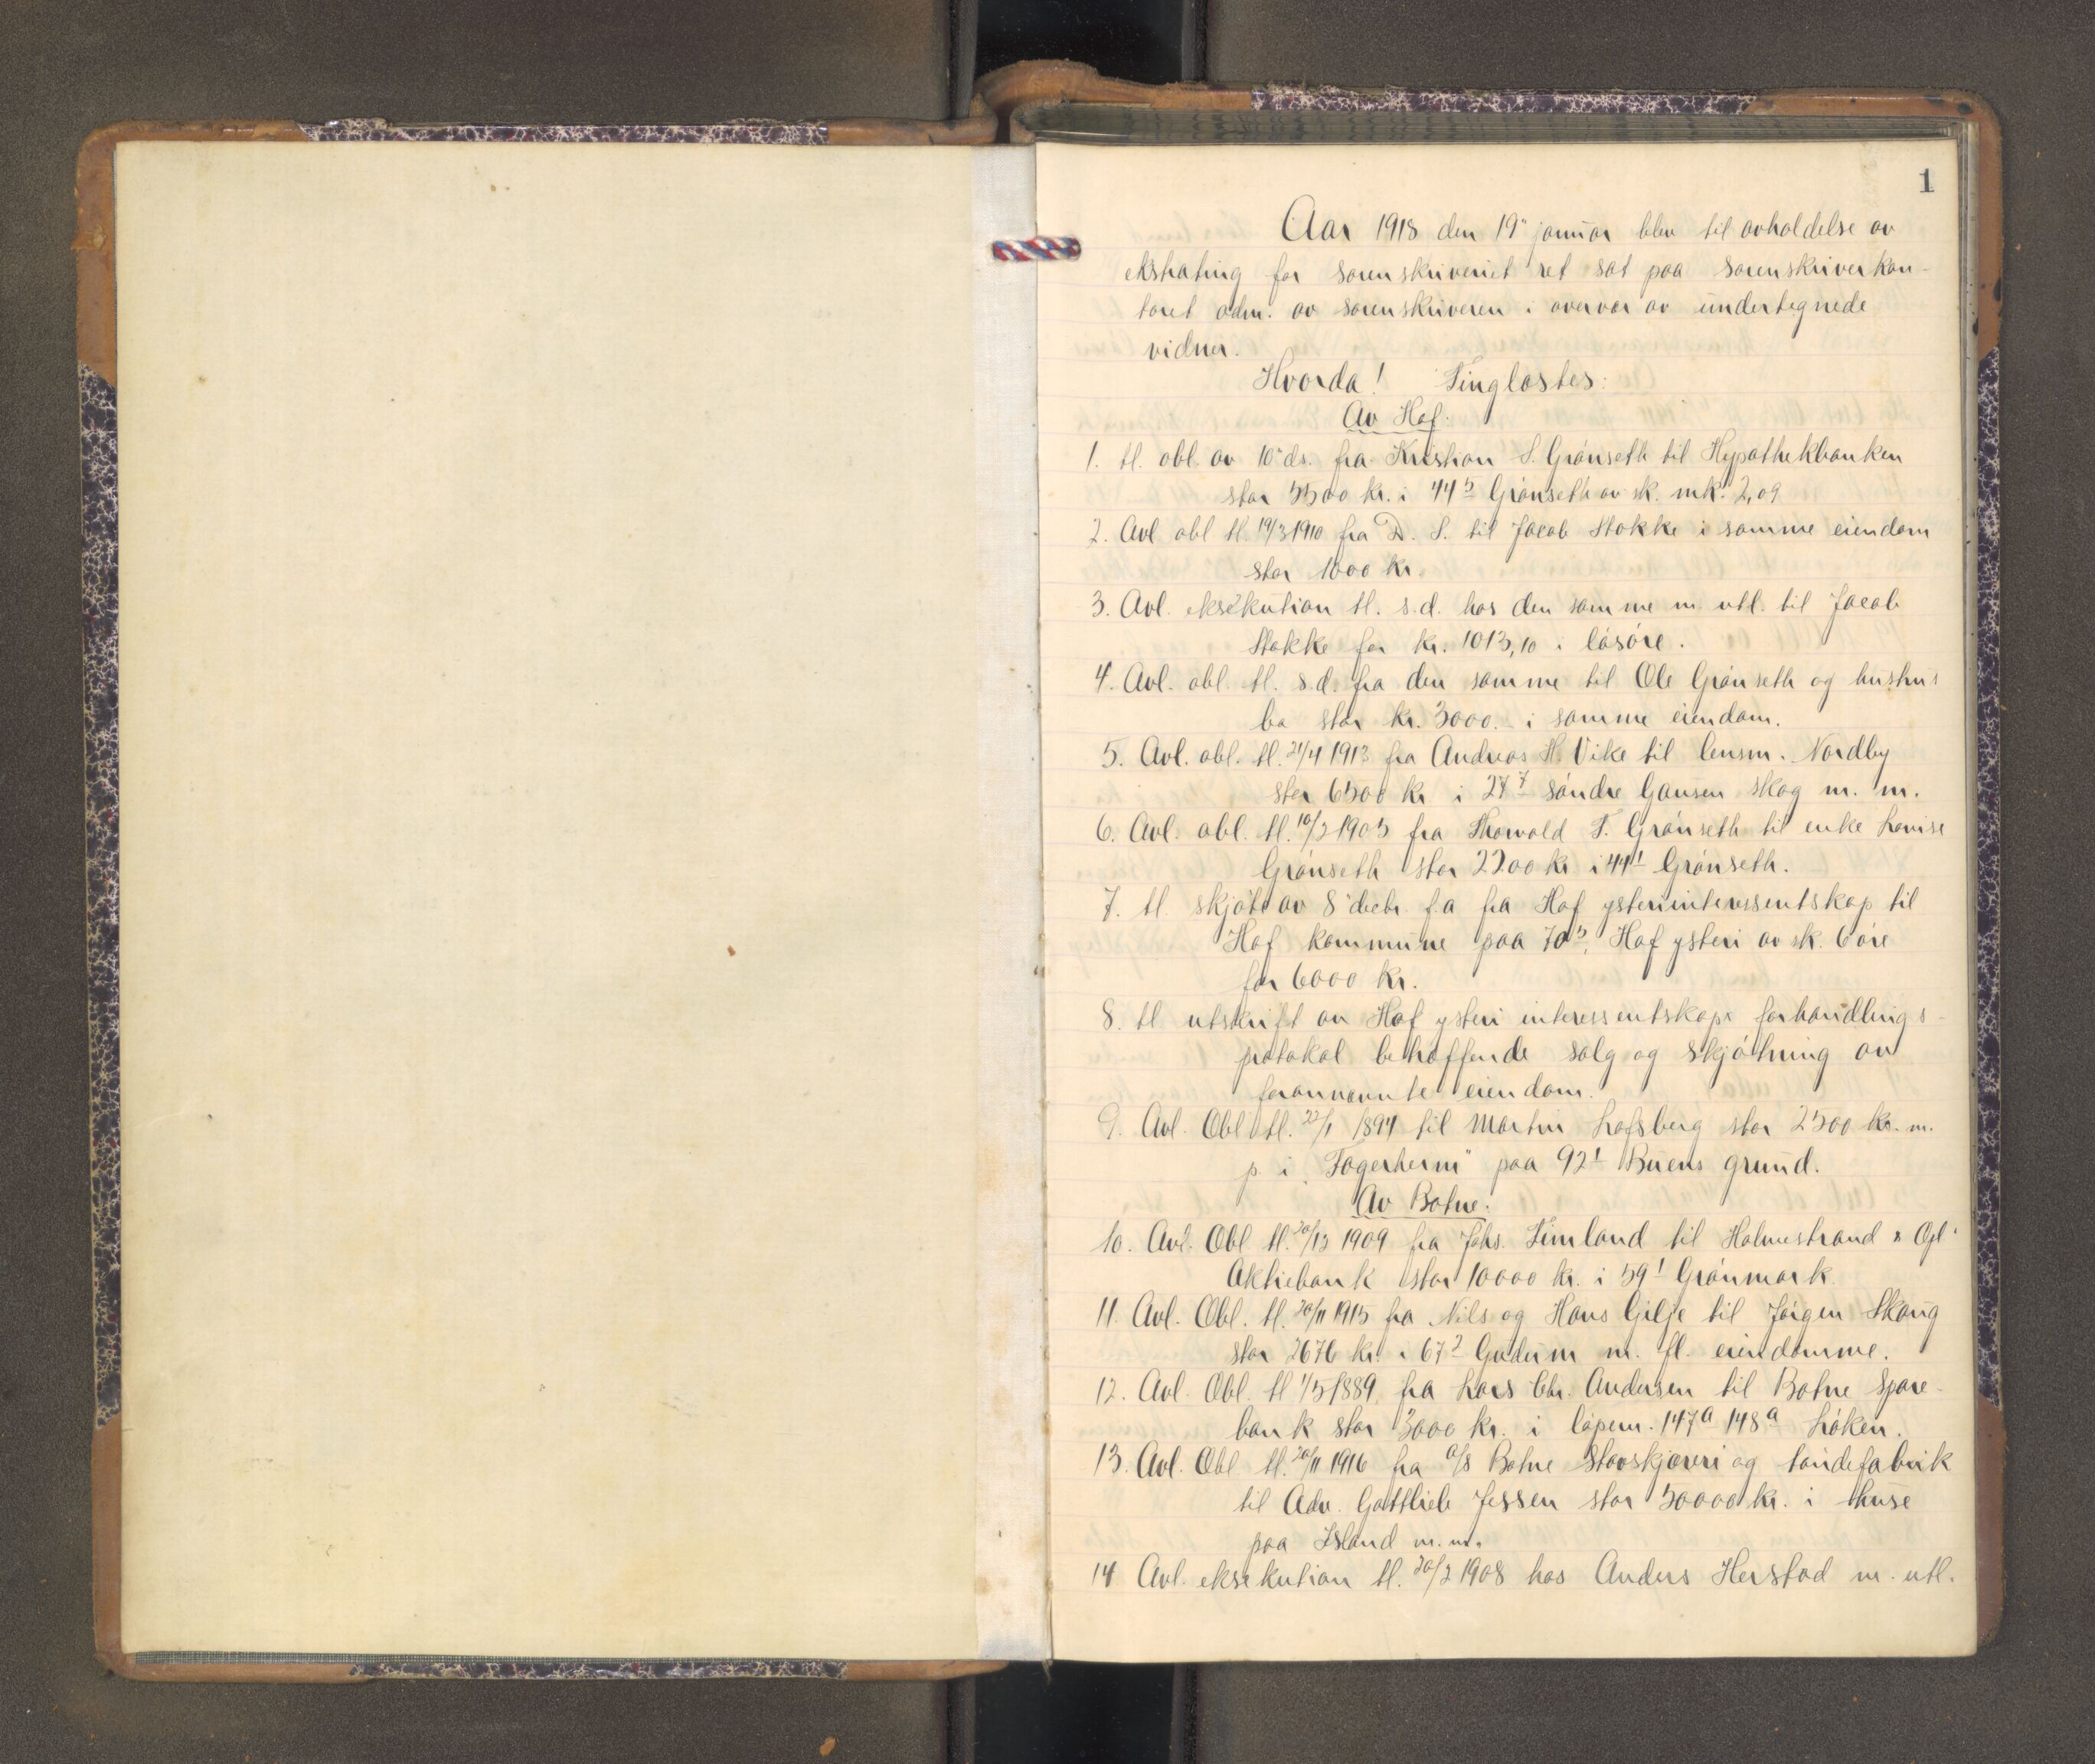 1
Aar 1918 den 19' januar blev til avholdelse av
ekstrating for sorenskriveriet ret sat paa sorenskriverkon-
toret adm. av sorenskriveren i overvær av undertegnede
vidner.
Hvorda! Tinglæstes:
Av Hof:
1. tl. obl. av 10' ds. fra Kristian S. Grønseth til Hypothekbanken
stor 5500 kr. i 44 5 Grønseth av sk. mk. 2,09
2. Avl obl tl. 19/3 1910 fra D. S. til Jacob Stokke i samme eiendom
stor 1000 kr.
3. Avl. eksekution tl. s.d. hos den samme m. utl. til Jacob
Stokke for kr. 1013,10 i løsøre.
4. Avl. obl. tl. s.d. fra den samme til Ole Grønseth og hustru
bo stor kr. 3000.- i samme eiendom.
5. Avl. obl. tl. 21/4 1913 fra Andreas H. Vike til lensm. Nordby
stor 6500 kr. i 27 7 søndre Gausen skog m. m.
6. Avl. obl. tl. 10/2 1905 fra Thorvald T. Grønseth til enke Lovise
Grønseth stor 2200 kr i 44 1 Grønseth.
7. tl. skjøte av 8' decbr. f.a fra Hof ysteriinteressentskap til
Hof kommune paa 70 5, Hof ysteri av sk. 6 øre
for 6000 kr.
8. tl utskrift av Hof ysteri interessentskaps forhandlings-
protokol betræffende salg og skjøtning av
forannævnte eiendom.
9. Avl. Obl tl. 22/1 1894 til Martin Lofsberg stor 2500 kr. m.
p. i "Fagerheim" paa 92 1 Buens grund.
Av Botne:
10. Avl. Obl tl. 20/12 1909 fra Johs. Timland til Holmestrand & Opl.
Aktiebank stor 10000 kr. i 59 1 Grønmark.
11. Avl. Obl. tl. 20/11 1915 fra Nils og Hans Gilje til Jørgen Skaug
stor 2676 kr. i 67 2 Gudum m. fl. eiendomme.
12. Avl. Obl. tl 1/5 1889 fra Lars Chr. Andersen til Botne Spare-
bank stor 3000 kr. i løpenr. 147a 148a Løken.
13. Avl. Obl tl. 20/11 1916 fra A/S Botne Stavskjæreri og tøndefabrik
til Adv. Gottlieb Jessen stor 50000 kr. i huse
paa Island m.m.
14 Avl. eksekution tl. 20/2 1908 hos Anders Herstad m. utl.